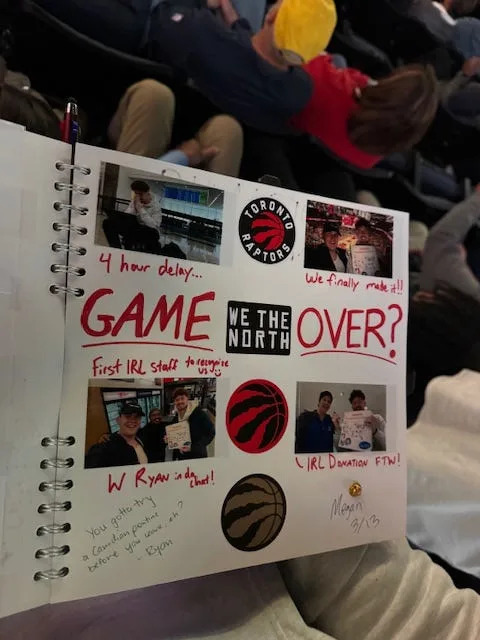 TORONTO
RAPTORS
4 hour delay...
We finally made it!!
GAME
WE THE
NORTH
OVER?
First IRL staff to recognize
us
W RYAN in da
chat!
IRL DONATION FTW!
You gotta try
a Canadian poutine
before you leave, eh?
- Ryan
Megan
3/13